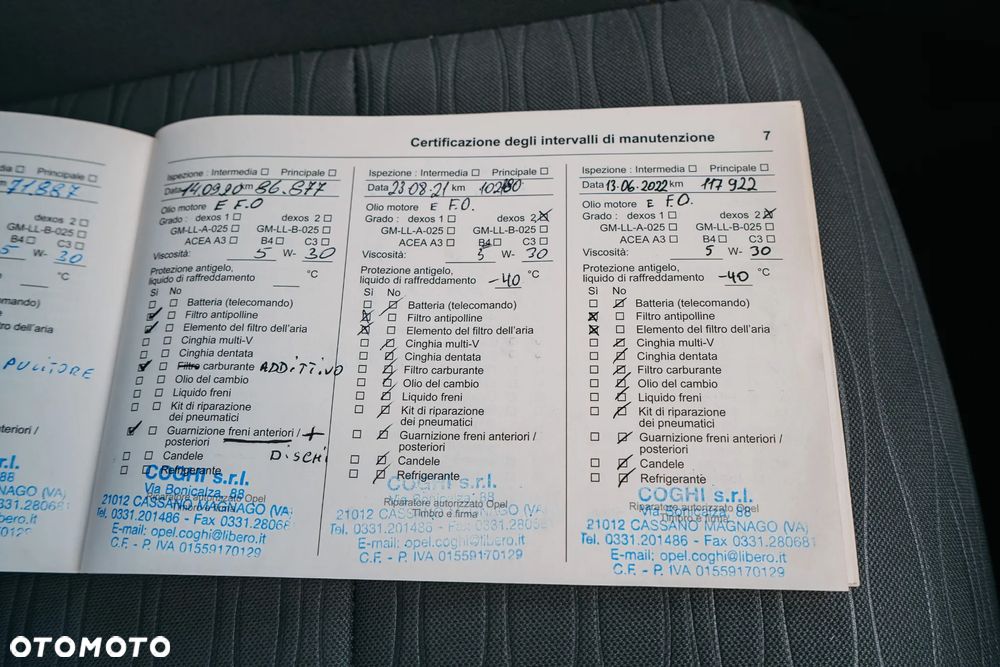 Certificazione degli intervalli di manutenzione 7
Principale
71.887
dexos 2
GM-LL-B-025
B4 C3
5 W- 30
°C
comando)
tro dell'aria
PULITORE
teriori /
r.l.
88
NAGO (VA)
331.28068
bero.it
0129
Ispezione : Intermedia Principale
Data 14.09.20 km 86.877
Olio motore E F.O
Grado : dexos 1 dexos 2
GM-LL-A-025 GM-LL-B-025
ACEA A3 B4 C3
Viscosità: 5 W- 30
Protezione antigelo,
liquido di raffreddamento °C
Sì No
Batteria (telecomando)
Filtro antipolline
Elemento del filtro dell'aria
Cinghia multi-V
Cinghia dentata
Filtro carburante ADDITIVO
Olio del cambio
Liquido freni
Kit di riparazione
dei pneumatici
Guarnizione freni anteriori / +
posteriori DISCHI
Candele
Refrigerante
COGHI s.r.l.
Via Bonicalza, 88
Riparatore autorizzato Opel
Timbro e firma
21012 CASSANO MAGNAGO (VA)
Tel. 0331.201486 - Fax 0331.28068
E-mail: opel.coghi@libero.it
C.F. - P. IVA 01559170129
Ispezione : Intermedia Principale
Data 23 08.21 km
Olio motore E F.O.
Grado : dexos 1 dexos 2
GM-LL-A-025 GM-LL-B-025
ACEA A3 B4 C3
Viscosità: 5 W- 30
Protezione antigelo,
liquido di raffreddamento -40 °C
Sì No
Batteria (telecomando)
Filtro antipolline
Elemento del filtro dell'aria
Cinghia multi-V
Cinghia dentata
Filtro carburante
Olio del cambio
Liquido freni
Kit di riparazione
dei pneumatici
Guarnizione freni anteriori /
posteriori
Candele
Refrigerante
COGHI s.r.l.
Via Bonicalza, 88
Riparatore autorizzato Opel
Timbro e firma
21012 CASSANO MAGNAGO (VA)
Tel. 0331.201486 - Fax 0331.280681
E-mail; opel.coghi@libero.it
C.F. - P. IVA 01559170129
Ispezione : Intermedia Principale
Data 13.06.2022 km 117 922
Olio motore E F.O.
Grado : dexos 1 dexos 2
GM-LL-A-025 GM-LL-B-025
ACEA A3 B4 C3
Viscosità: 5 W- 30
Protezione antigelo,
liquido di raffreddamento -40 °C
Sì No
Batteria (telecomando)
Filtro antipolline
Elemento del filtro dell'aria
Cinghia multi-V
Cinghia dentata
Filtro carburante
Olio del cambio
Liquido freni
Kit di riparazione
dei pneumatici
Guarnizione freni anteriori /
posteriori
Candele
Refrigerante
COGHI s.r.l.
Riparatore autorizzato Opel
Via Bonicalza,
Timbro e firma
21012 CASSANO MAGNAGO (VA)
Tel. 0331.201486 - Fax 0331.280681
E-mail; opel.coghi@libero.it
C.F. - P. IVA 01559170129
OTOMOTO